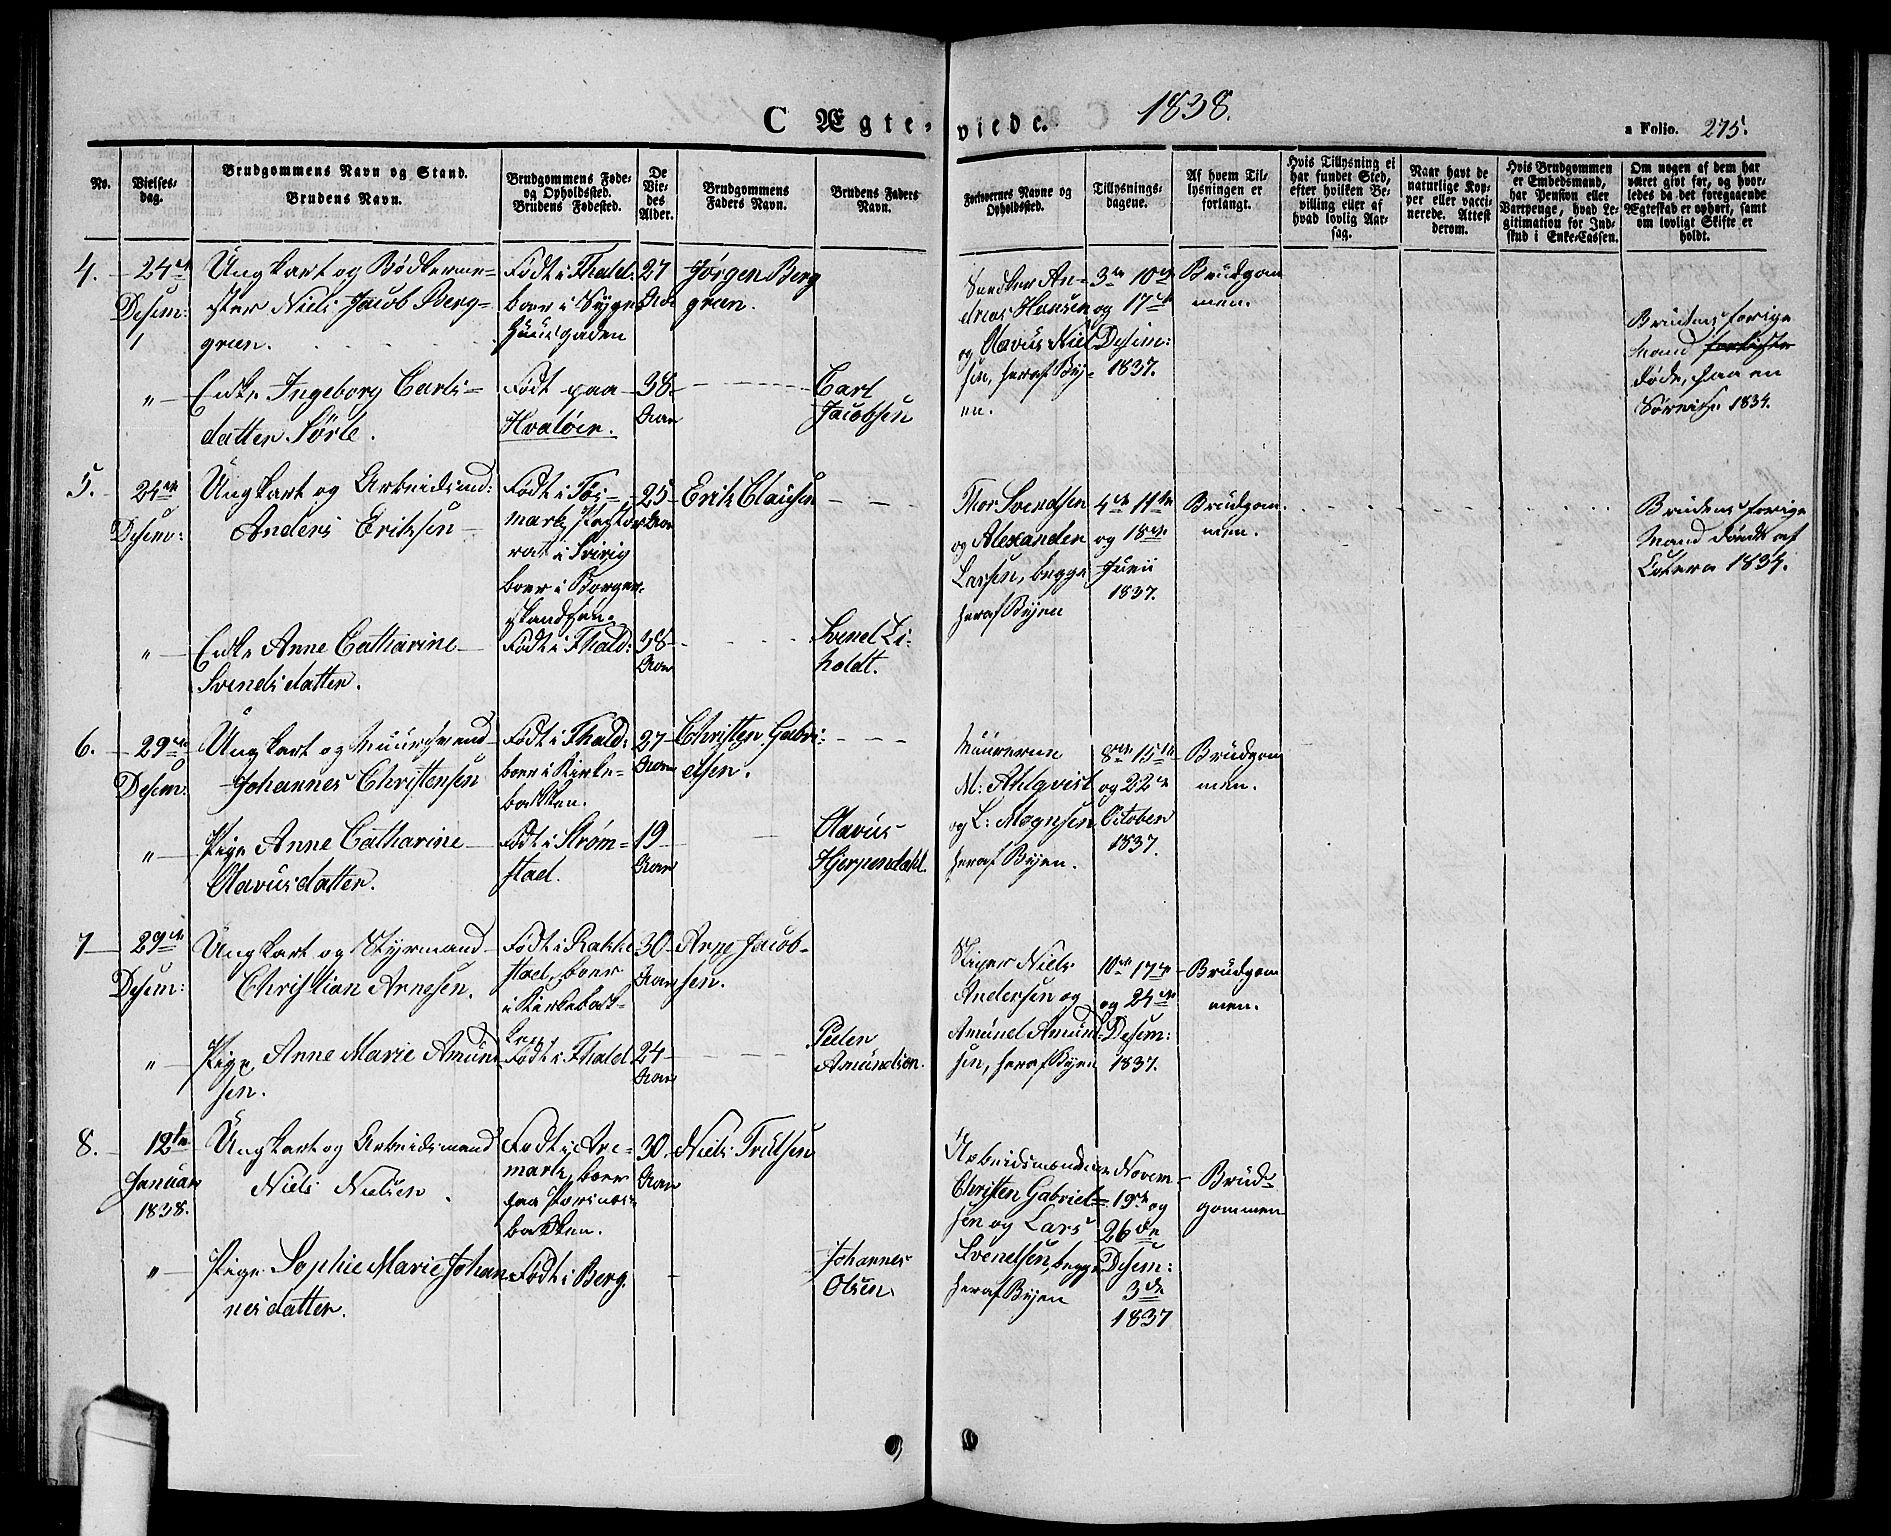 C Ægte- viede. 1838.
a Folio. 275.
No.
Vielses-
dag.
Brudgommens Navn og Stand.
Brudens Navn.
Brudgommens Føde-
og Opholdssted.
Brudens Fødested.
De
Vie-
des
Alder.
Brudgommens
Faders Navn.
Brudens Faders
Navn.
Forlovernes Navne og
Opholdssted.
Tillysnings-
dagene.
Af hvem Til-
lysningen er
forlangt.
Hvis Tillysning ei
har fundet Sted,
efter hvilken Be-
villing eller af
hvad lovlig Aar-
sag.
Naar havt de
naturlige Kop-
per eller vacci-
nerede. Attest
derom.
Hvis Brudgommen
er Embedsmand,
har Pension eller
Vartpenge, hvad Le-
gitimation for Ind-
skud i Enke-Cassen.
Om nogen af dem har
været givt før, og hvor-
ledes da det foregaaende
Ægteskab er ophørt, samt
om lovligt Skifte er
holdt.
4.
24de
Desem:
Ungkarl og Bødkerme-
ster Niels Jacob Berg-
green.
Født i Fhald:
boer i Syge
Huusgaden
27
Jørgen Berg
green.
Andreas Hansen
og Olavus Niel
sen, heraf By-
en.
3de 10de
og 17de
Desem:
1837.
Brudgom
men.
Brudens forige
Mand
døde, paa en
1834.
"
Enke Ingeborg Carls-
datter Sörle.
Født paa
Hvaløer.
38
Aar
Carl
Jacobsen
5.
24de
Desem:
Ungkarl og Arbeidsmd:
Anders Eriksen
Født i
mark, Pastor
rat i Sverig
boer i Borger-
skandsen.
25
Aar
Erik Clausen
Thor Svendsen
og Alexander
Larsen, begge
heraf Byen
4de 11te
og 18de
Juni
1837.
Brudgom
men.
Brudens forige
Mand døde af
Colera 1834.
"
Enke Anne Catharine
Svendsdatter.
Født i Fhald:
38
Aar
Svend Li-
holdt.
6.
29de
Desem:
Ungkarl og Muursvend
Johannes Christensen
Født i Fhald:
boer i Kirke-
bakken.
27
Aar
Christen Gabri-
elsen.
Muurerne
M: Ahlqvist
og L: Mognsen
heraf Byen.
8de 15de
og 22de
October
1837.
Brudgom
men.
"
Pige Anne Catharine
Olavusdatter.
Født i Strøm-
stad.
19
Aar
Olavus
Hjerpendahl.
7
29de
Desem:
Ungkarl og Styrmand
Christian Arnesen.
Født i Rakke
stad, boer
i Kirkebak-
ken
30
Aar
Arne Jacob-
sen.
Niels
Andersen og
Amund Amund-
sen, heraf Byen
10de 17de
og 24de
Desem:
1837.
Brudgom
men.
"
Pige Anne Marie Amund
sen.
Født i Fhald
24
Aar
Peder
Amundsen.
8.
12te
Januar
1838.
Ungkarl og Arbeidsmand
Niels Nielsen
Født i Are-
mark, boer
paa
bakken.
30
Aar
Niels
Arbeidsmændene
Christen Gabriel-
sen og Lars
Svendsen, begge
heraf Byen
Novem
19de og
26de
Desem:
3de
1837
Brud-
gommen
"
Pige Sophie Marie Johan
nesdatter.
Født i Berg.
Johannes
Olsen.